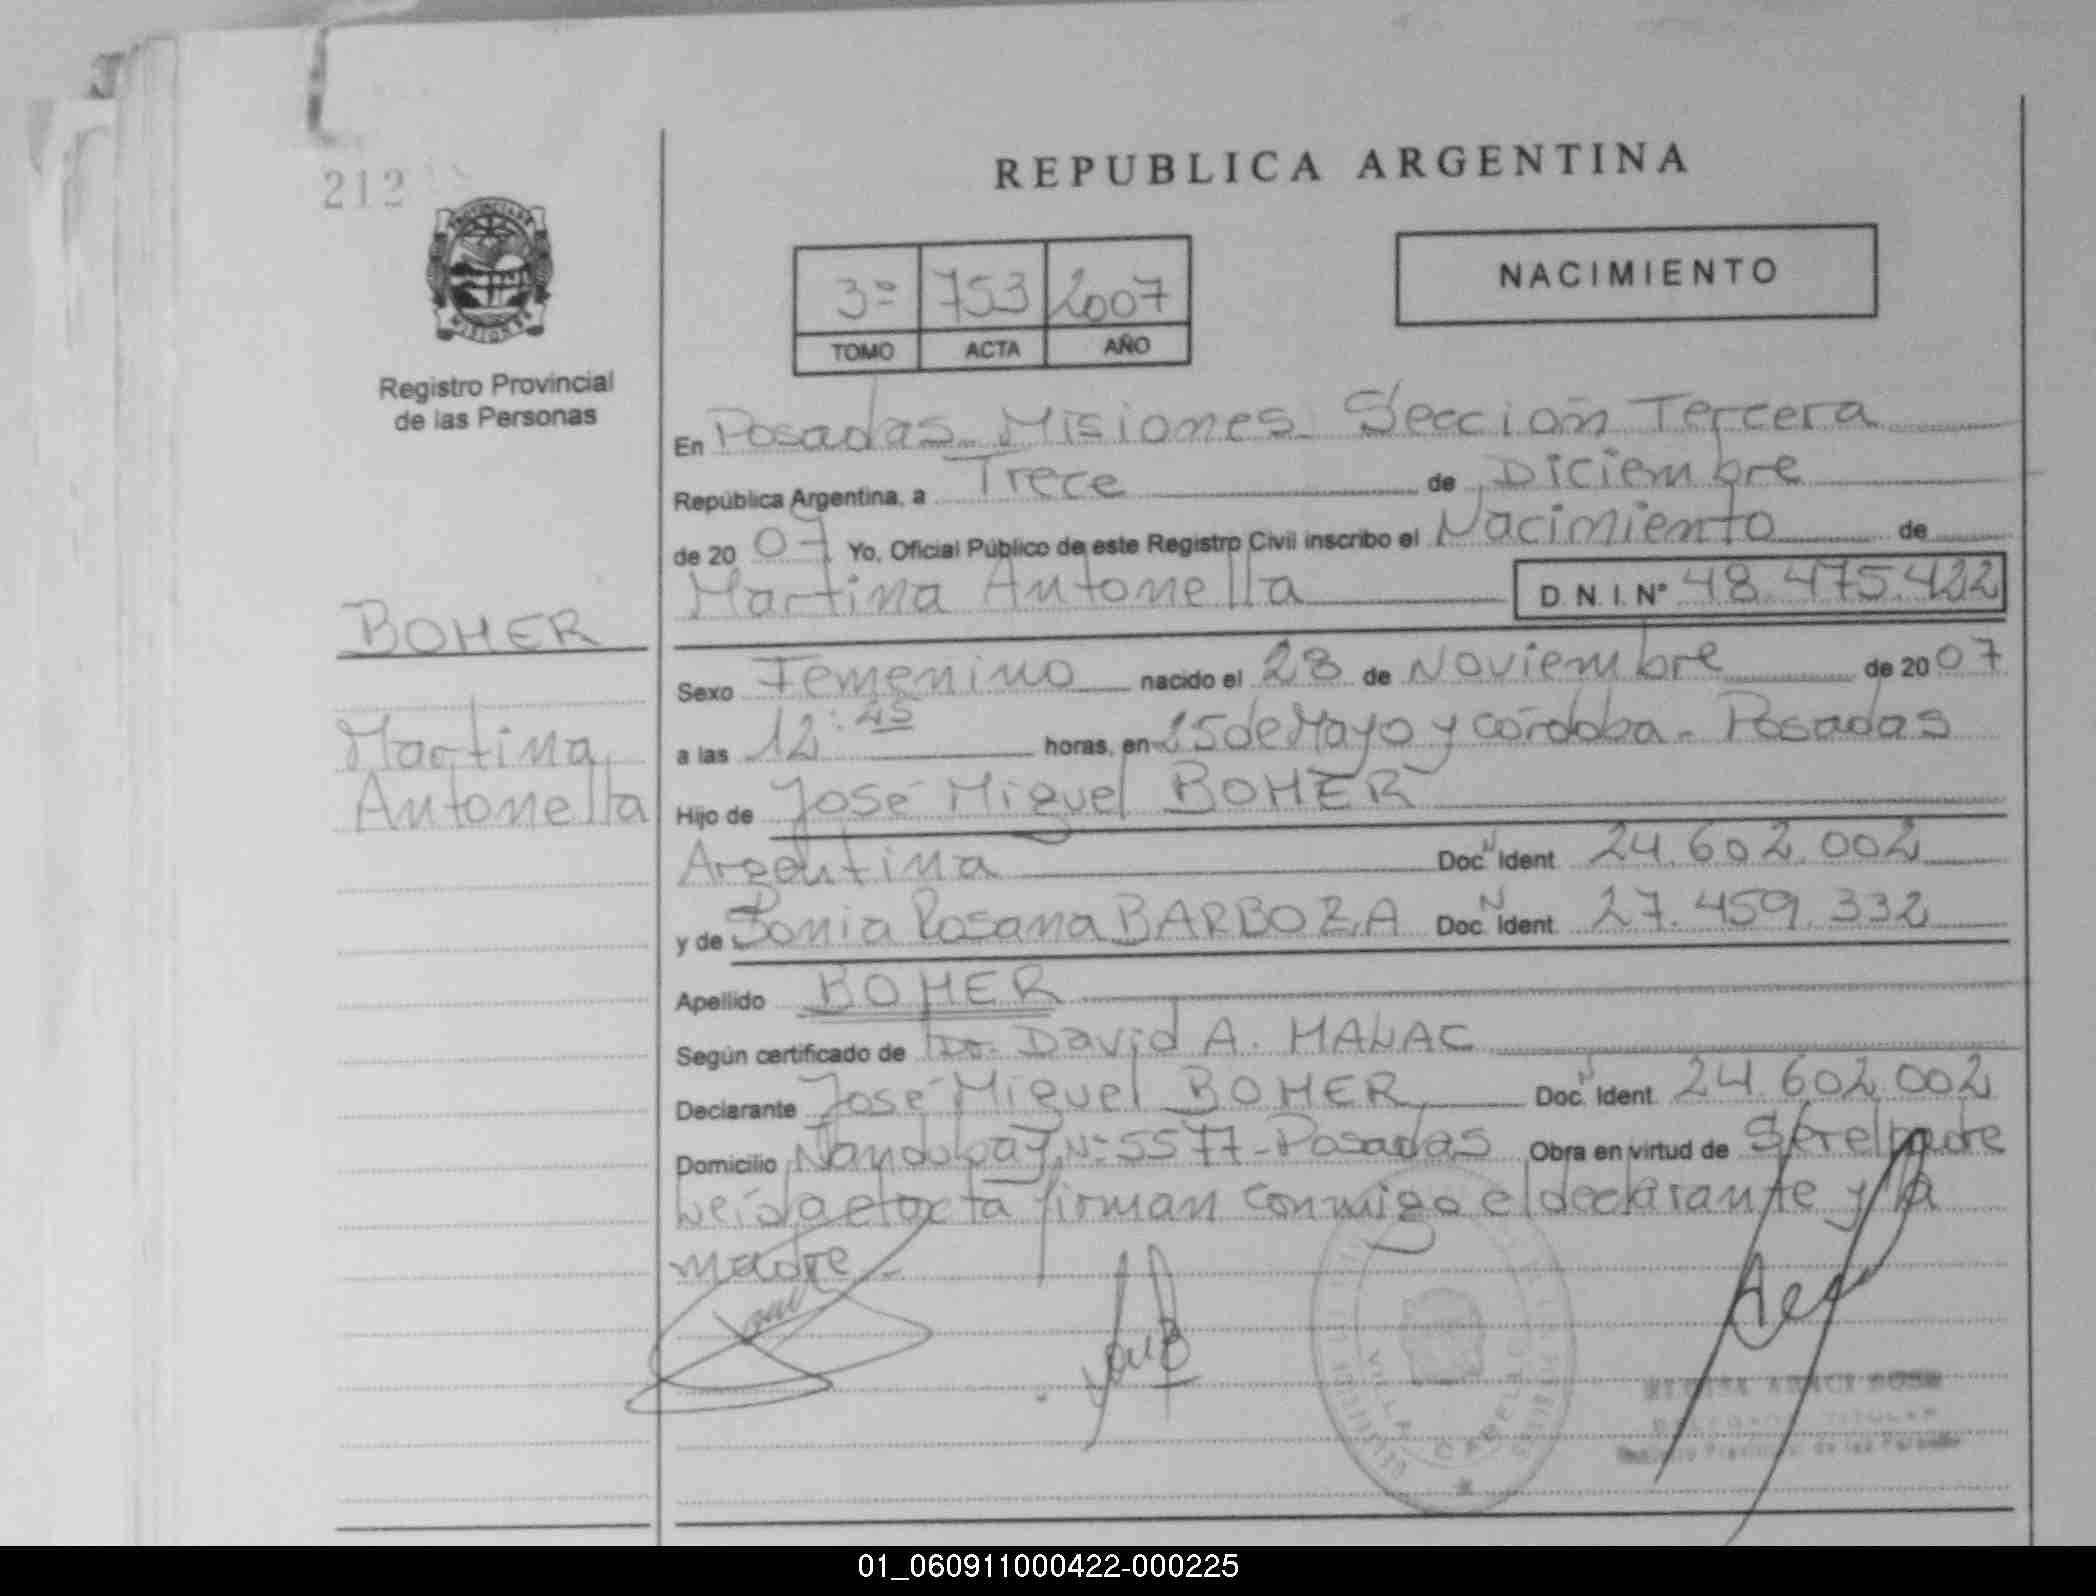 REPUBLICA ARGENTINA
212
PROVINCIA DE
MISIONES
Registro Provincial
de las Personas
3º 753 2007
TOMO ACTA AÑO
NACIMIENTO
En Posadas Misiones Sección Tercera
República Argentina, a Trece de Diciembre
de 20 07 Yo, Oficial Público de este Registro Civil inscribo el Nacimiento de
Martina Antonella D.N.I.Nº 48.475.422
BOHER
Martina
Antonella
Sexo Femenino nacido el 28 de Noviembre de 20 07
a las 12:45 horas, en 25 de Mayo y córdoba - Posadas
Hijo de José Miguel BOHER
Argentina Doc. N Ident 24.602.002
y de Sonia Rosana BARBOZA Doc. N Ident 27.459.332
Apellido BOHER
Según certificado de Dr. David A. MALAC
Declarante José Miguel BOHER Doc. N Ident. 24.602.002
Domicilio Ñandubay Nº 5577 - Posadas Obra en virtud de Ser el padre
Leída el acta firman conmigo el declarante y la
madre.-
VILLA CABELLO
DELEGADA TITULAR
Registro Provincial de las Personas
01_060911000422-000225